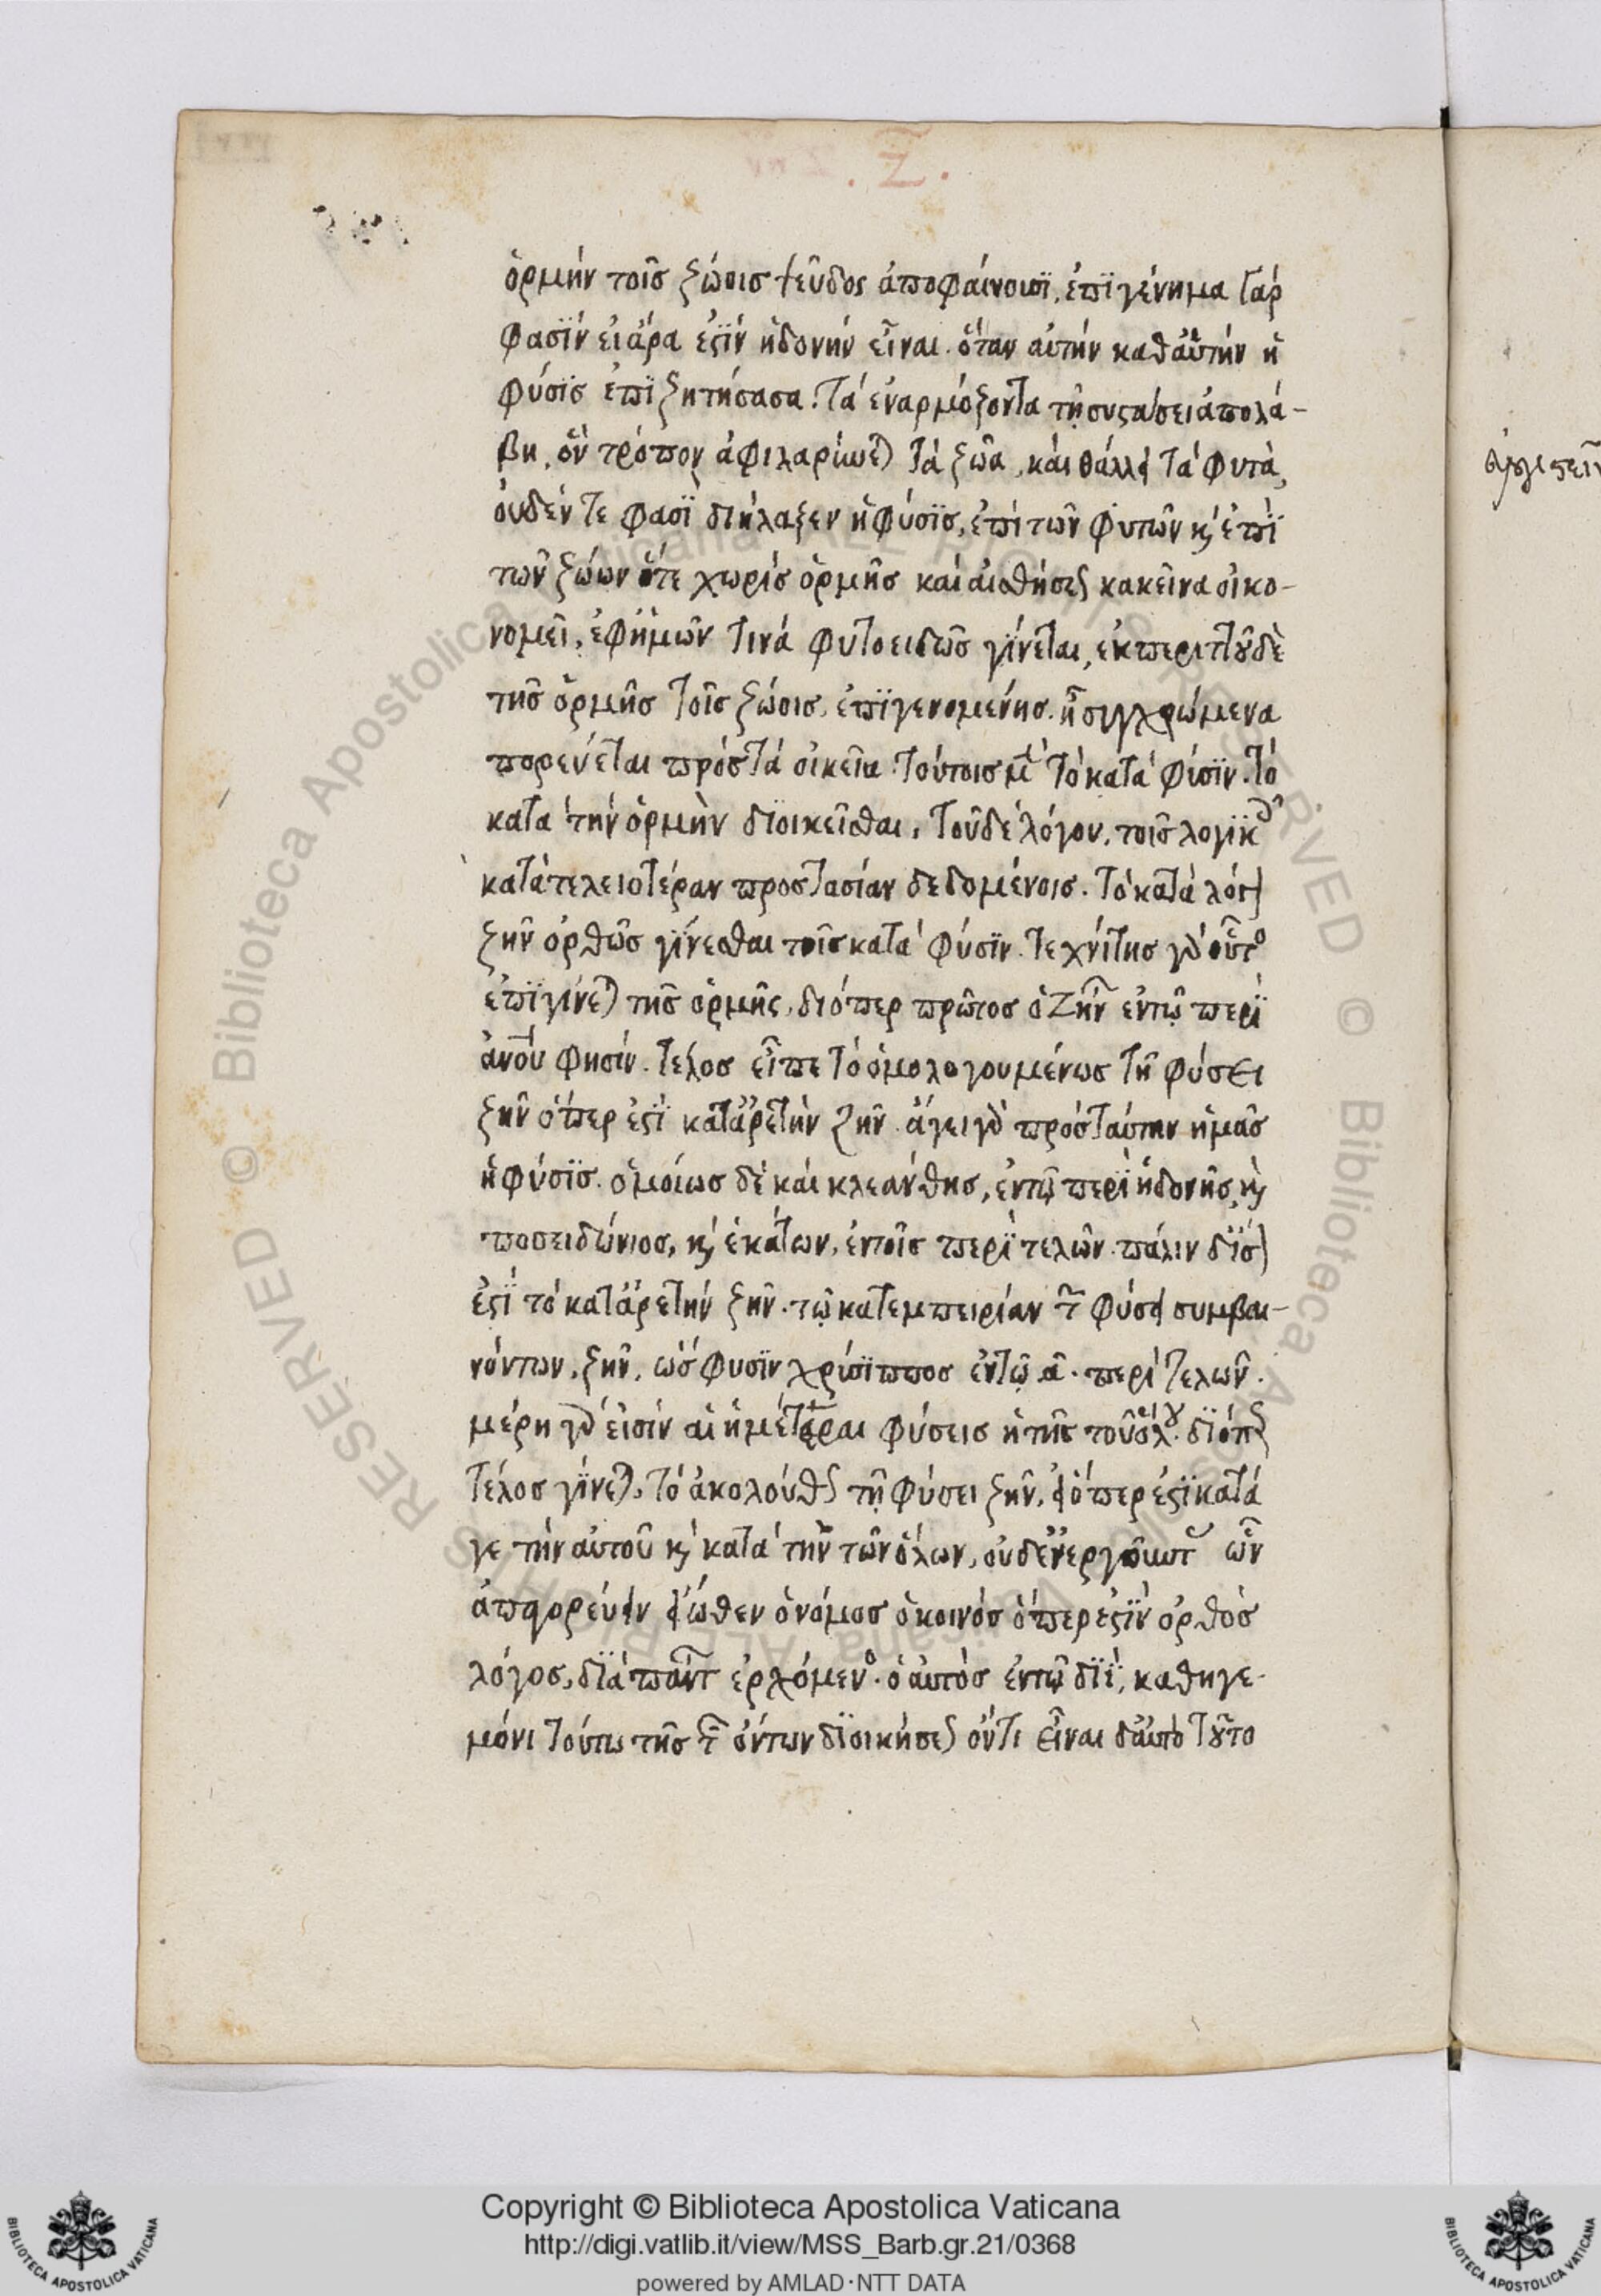 .Ζ̅.
ὁρμήν τοῖς ζώοισ ψεῦδος ἀποφαίνουσϊ, ἐπϊγέννημα γάρ
φασϊν εἰ ἄρα ἐϛϊν ἡδονήν εἶναι. ὅταν αὐτήν καθαὑτήν ἡ
φύσϊς ἐπϊζητήσασα. τά ἐναρμόζοντα τῇ συϛάσει ἀπολά-
βη. ὃν τρόπον ἀφιλαρύνε) τά ζῶα, καί θάλλει τά φυτά,
ὀυδέν τε φασϊ διήλαξεν ἡ φύσϊς, ἐπί τῶν φυτῶν κ(αὶ) ἐπϊ
τῶν ζώων ὅτε χωρίς ὁρμῆς καί αἰσθήσεως κακεῖνα οἰκο-
νομεῖ, ἐφἡμῶν τινά φυτοειδῶς γίνεται, ἐκπεριττοῦ δὲ
τῆς ὁρμῆς τοῖς ζώοισ, ἐπϊγενομένησ. ᾗ συγχρώμενα
πορεύεται πρός τά οἰκεῖα. τούτοισ μ(ὲν) τό κατά φύσϊν. τό
κατα τήν ὁρμὴν δϊοικεῖσθαι, τοῦ δέ λόγου, τοῖς λογϊκ(οῖς)
κατά τελειοτέραν προστασίαν δεδομένοισ. τό κατά λόγ(ον)
ζῆν ὀρθῶς γίνεσθαι τοῖς κατα φύσϊν. τεχνίτησ γὰρ οὗτο(ς)
ἐπϊγίνε) τῆς ὁρμῆς, διόπερ πρῶτοσ ὁ Ζήν(ων) ἐντῷ περϊ
ἀν(θρώπ)ου φησίν. τέλοσ εἶπε τό ὁμολογουμένως τῇ φύσει
ζῆν ὅπερ ἐϛϊ κατἀρετὴν ζῆν. ἄγει γὰρ πρός ταύτην ἡμᾶς
ἡ φύσϊς. ὁμοίωσ δὲ καί κλεάνθησ, ἐντῷ περϊ ἡδονῆς, κ(αὶ)
ποσειδώνιοσ, κ(αὶ) ἑκάτων, ἐντοῖς περϊ τελῶν. πάλιν δ' ἴσ(ον)
ἐϛϊ τό κατἀρετήν ζῆν. τῷ κατεμπειρίαν τ(ῶν) φύσει συμβαι-
νόντων, ζῆν, ὥς φυσϊν χρύσϊπποσ ἐντῷ α. περί τελῶν.
μέρη γὰρ εἰσίν αἱ ἡμέτεραι φύσεισ ἡ τῆς τοῦ ὅλου. δϊόπ(ερ)
τέλοσ γίνε), τό ἀκολούθως τῇ φύσει ζῆν, ὅπερ ἐϛϊ κατά
γε τήν αὐτοῦ κ(αὶ) κατά τήν τῶν ὅλων, οὐδέν ἐνεργοῦντ(ας) ὧν
ἀπαγορεύειν εἴωθεν ὁ νόμοσ ὁ κοινός ὅπερ ἐϛϊν ὀρθός
λόγοσ, δϊά πάντ(ων) ἐρχόμενο(ς). ὁ αὐτός ἐντῷ δϊϊ, καθηγε-
μόνι τούτω τῆς τ(ῶν) ὄντων δϊοικήσε(ως) ὄντι εἶναι δ' ἀυτό τοῦτο
Copyright © Biblioteca Apostolica Vaticana
http://digi.vatlib.it/view/MSS_Barb.gr.21/0368
powered by AMLAD·NTT DATA